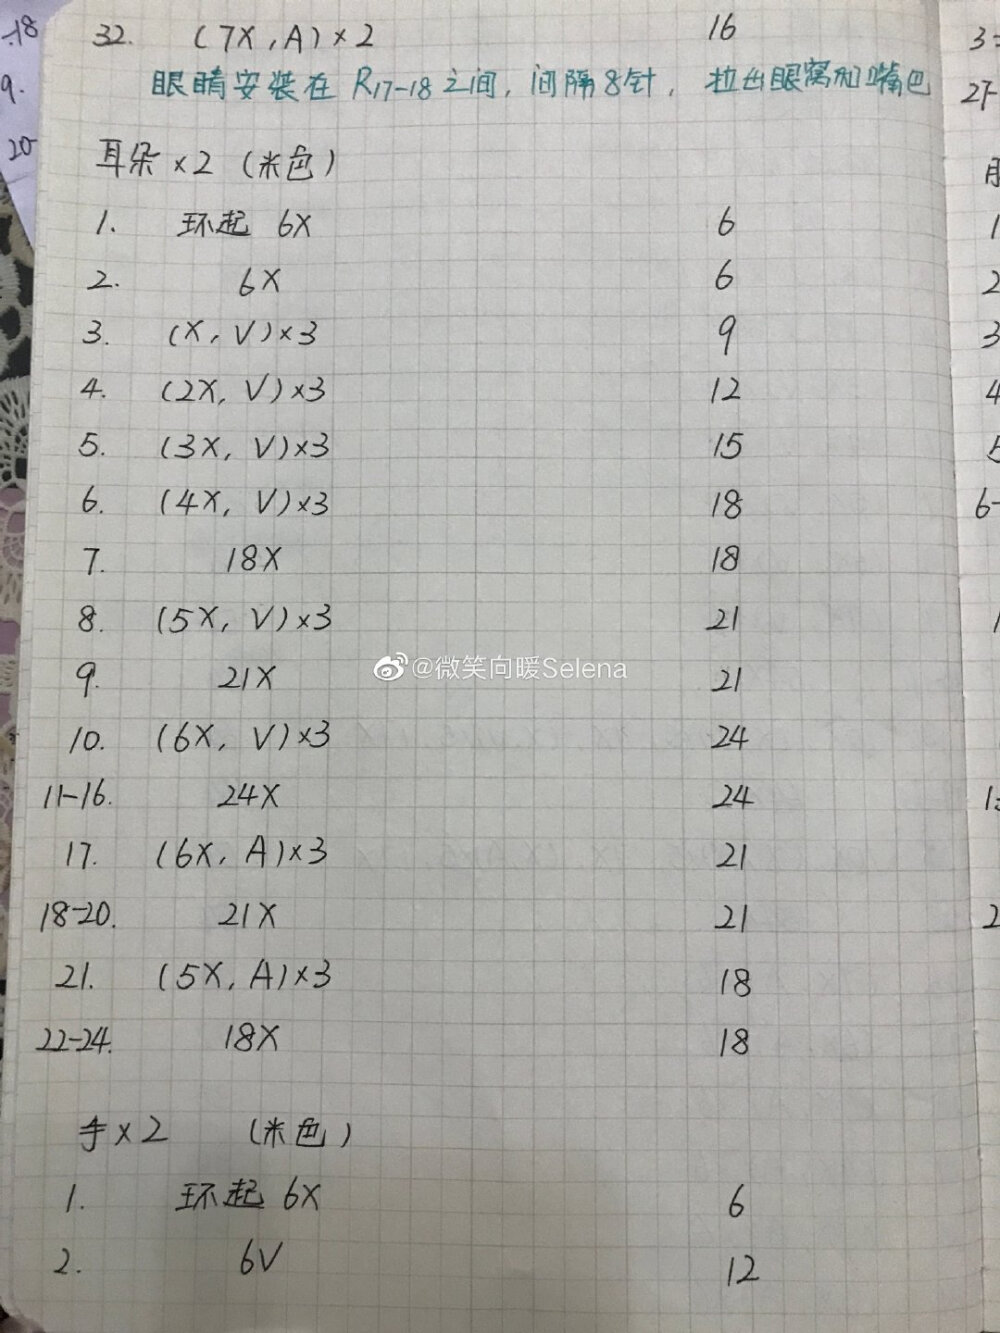 32. (7X,A)×2 16
眼睛安装在R17-18之间，间隔8针，拉出眼窝和嘴巴
耳朵×2 (米色)
1. 环起 6X 6
2. 6X 6
3. (X,V)×3 9
4. (2X,V)×3 12
5. (3X,V)×3 15
6. (4X,V)×3 18
7. 18X 18
8. (5X,V)×3 21
9. 21X 21
@微笑向暖Selena
10. (6X,V)×3 24
11-16. 24X 24
17. (6X,A)×3 21
18-20. 21X 21
21. (5X,A)×3 18
22-24. 18X 18
手×2 (米色)
1. 环起 6X 6
2. 6V 12
-18
9.
20
3
27-
1
2
3
4
5
6-
1
2